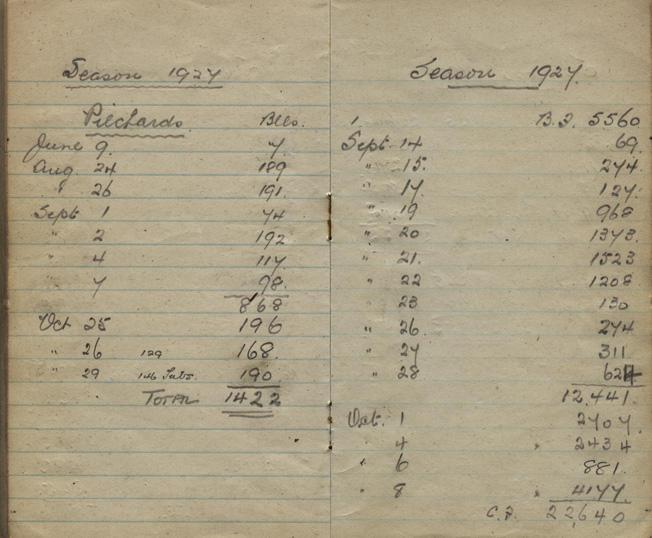 Season 1927
Pilchards Blls.
June 9. 7.
Aug 24 189
" 26 191.
Sept 1 74
" 2 192
" 4 117
" 7 98.
868
Oct 25 196
" 26 129 168.
" 29 146 Tubs. 190
TOTAL 1422
Season 1927.
B.F. 5560
Sept. 14 69.
" 15. 274
" 17 127.
" 19 968
" 20 1373.
" 21. 1523
" 22 1208
" 23 130
" 26. 274
" 27 311.
" 28 624
12,441.
Oct. 1 2707.
" 4 " 2434
" 6 881.
" 8 " 4177.
C.F. 22,640